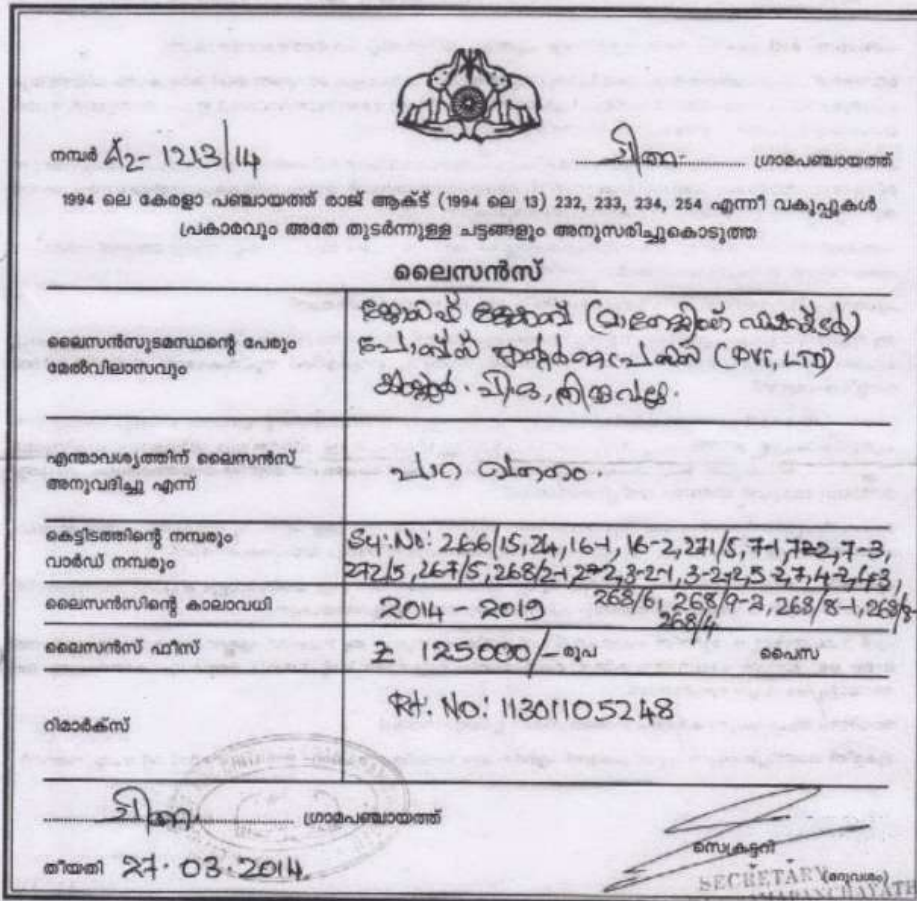 നമ്പർ A2- 1213/14 ഗ്രാമപഞ്ചായത്ത്
1994 ലെ കേരളാ പഞ്ചായത്ത് രാജ് ആക്ട് (1994 ലെ 13) 232, 233, 234, 254 എന്നീ വകുപ്പുകൾ
പ്രകാരവും അതേ തുടർന്നുള്ള ചട്ടങ്ങളും അനുസരിച്ചുകൊടുത്ത
ലൈസൻസ്
ലൈസൻസുടമസ്ഥന്റെ പേരും
മേൽവിലാസവും
(മാനേജിംഗ് ഡയറക്ടർ)
(PVT, LTD)
പി.ഒ, തിരുവല്ല.
എന്താവശ്യത്തിന് ലൈസൻസ്
അനുവദിച്ചു എന്ന്
പാറ ഖനനം.
കെട്ടിടത്തിന്റെ നമ്പരും
വാർഡ് നമ്പരും
Sy: No: 266/15, 24, 16-1, 16-2, 271/5, 7-1, 7-2, 7-3,
272/5, 267/5, 268/2-1, 2-2, 3-2-1, 3-2-2, 5-2, 7, 4-2, 4-3,
268/6, 268/9-2, 268/8-1,
268/4
ലൈസൻസിന്റെ കാലാവധി 2014 - 2019
ലൈസൻസ് ഫീസ് 125000/- രൂപ പൈസ
റിമാർക്സ് Rt. No: 11301105248
ഗ്രാമപഞ്ചായത്ത്
തീയതി 27.03.2014
സെക്രട്ടറി
(മറുവശം)
SECRETARY